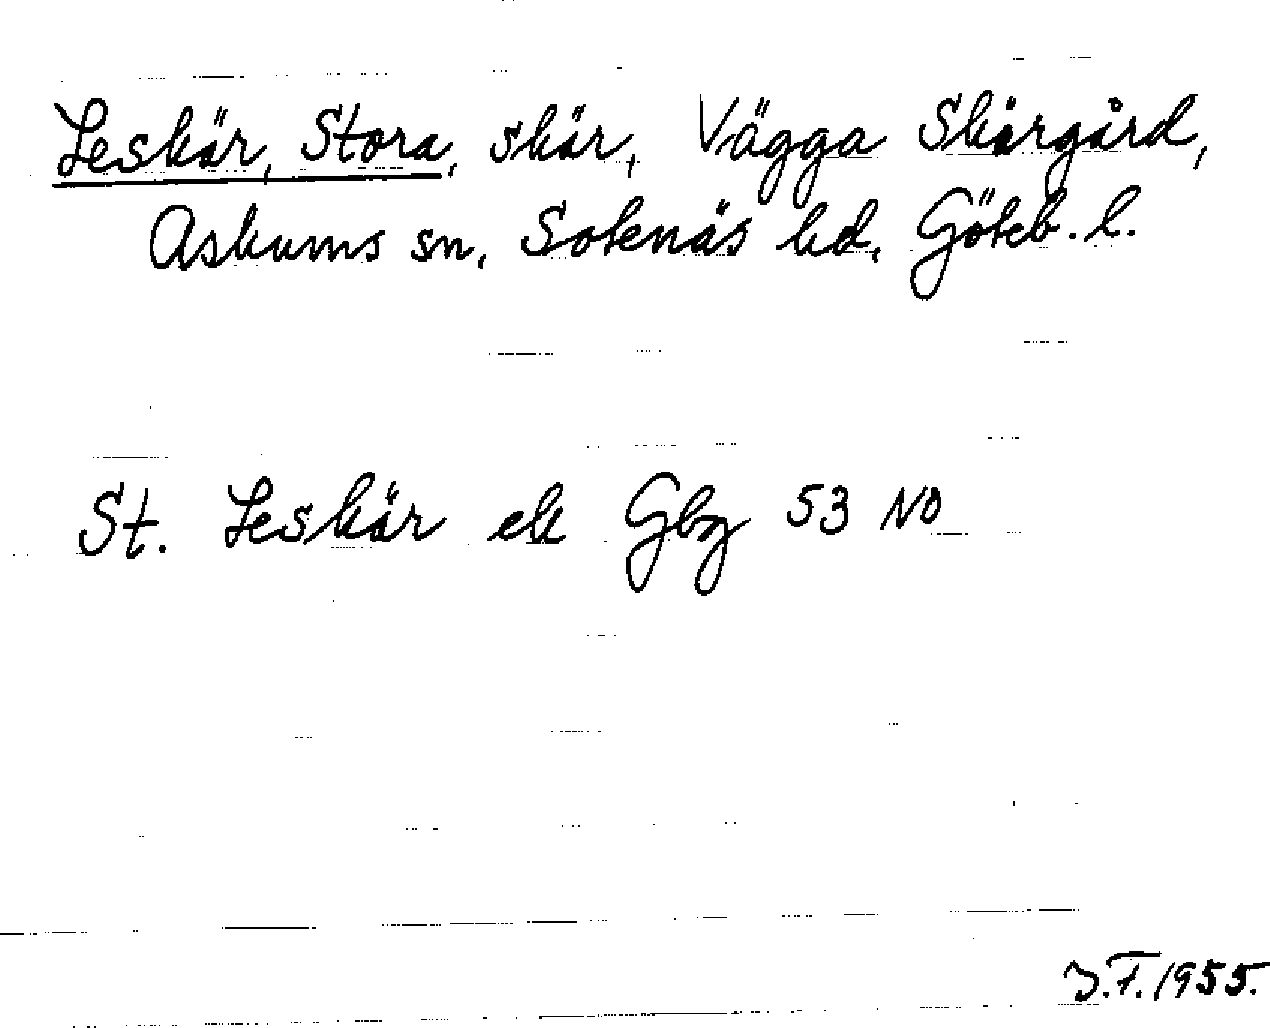 Leskär, Stora, skär, Vägga Skärgård,
Askums sn, Sotenäs hd, Göteb. l.
St. Leskär ek Gbg 53 NO
J.F. 1955.